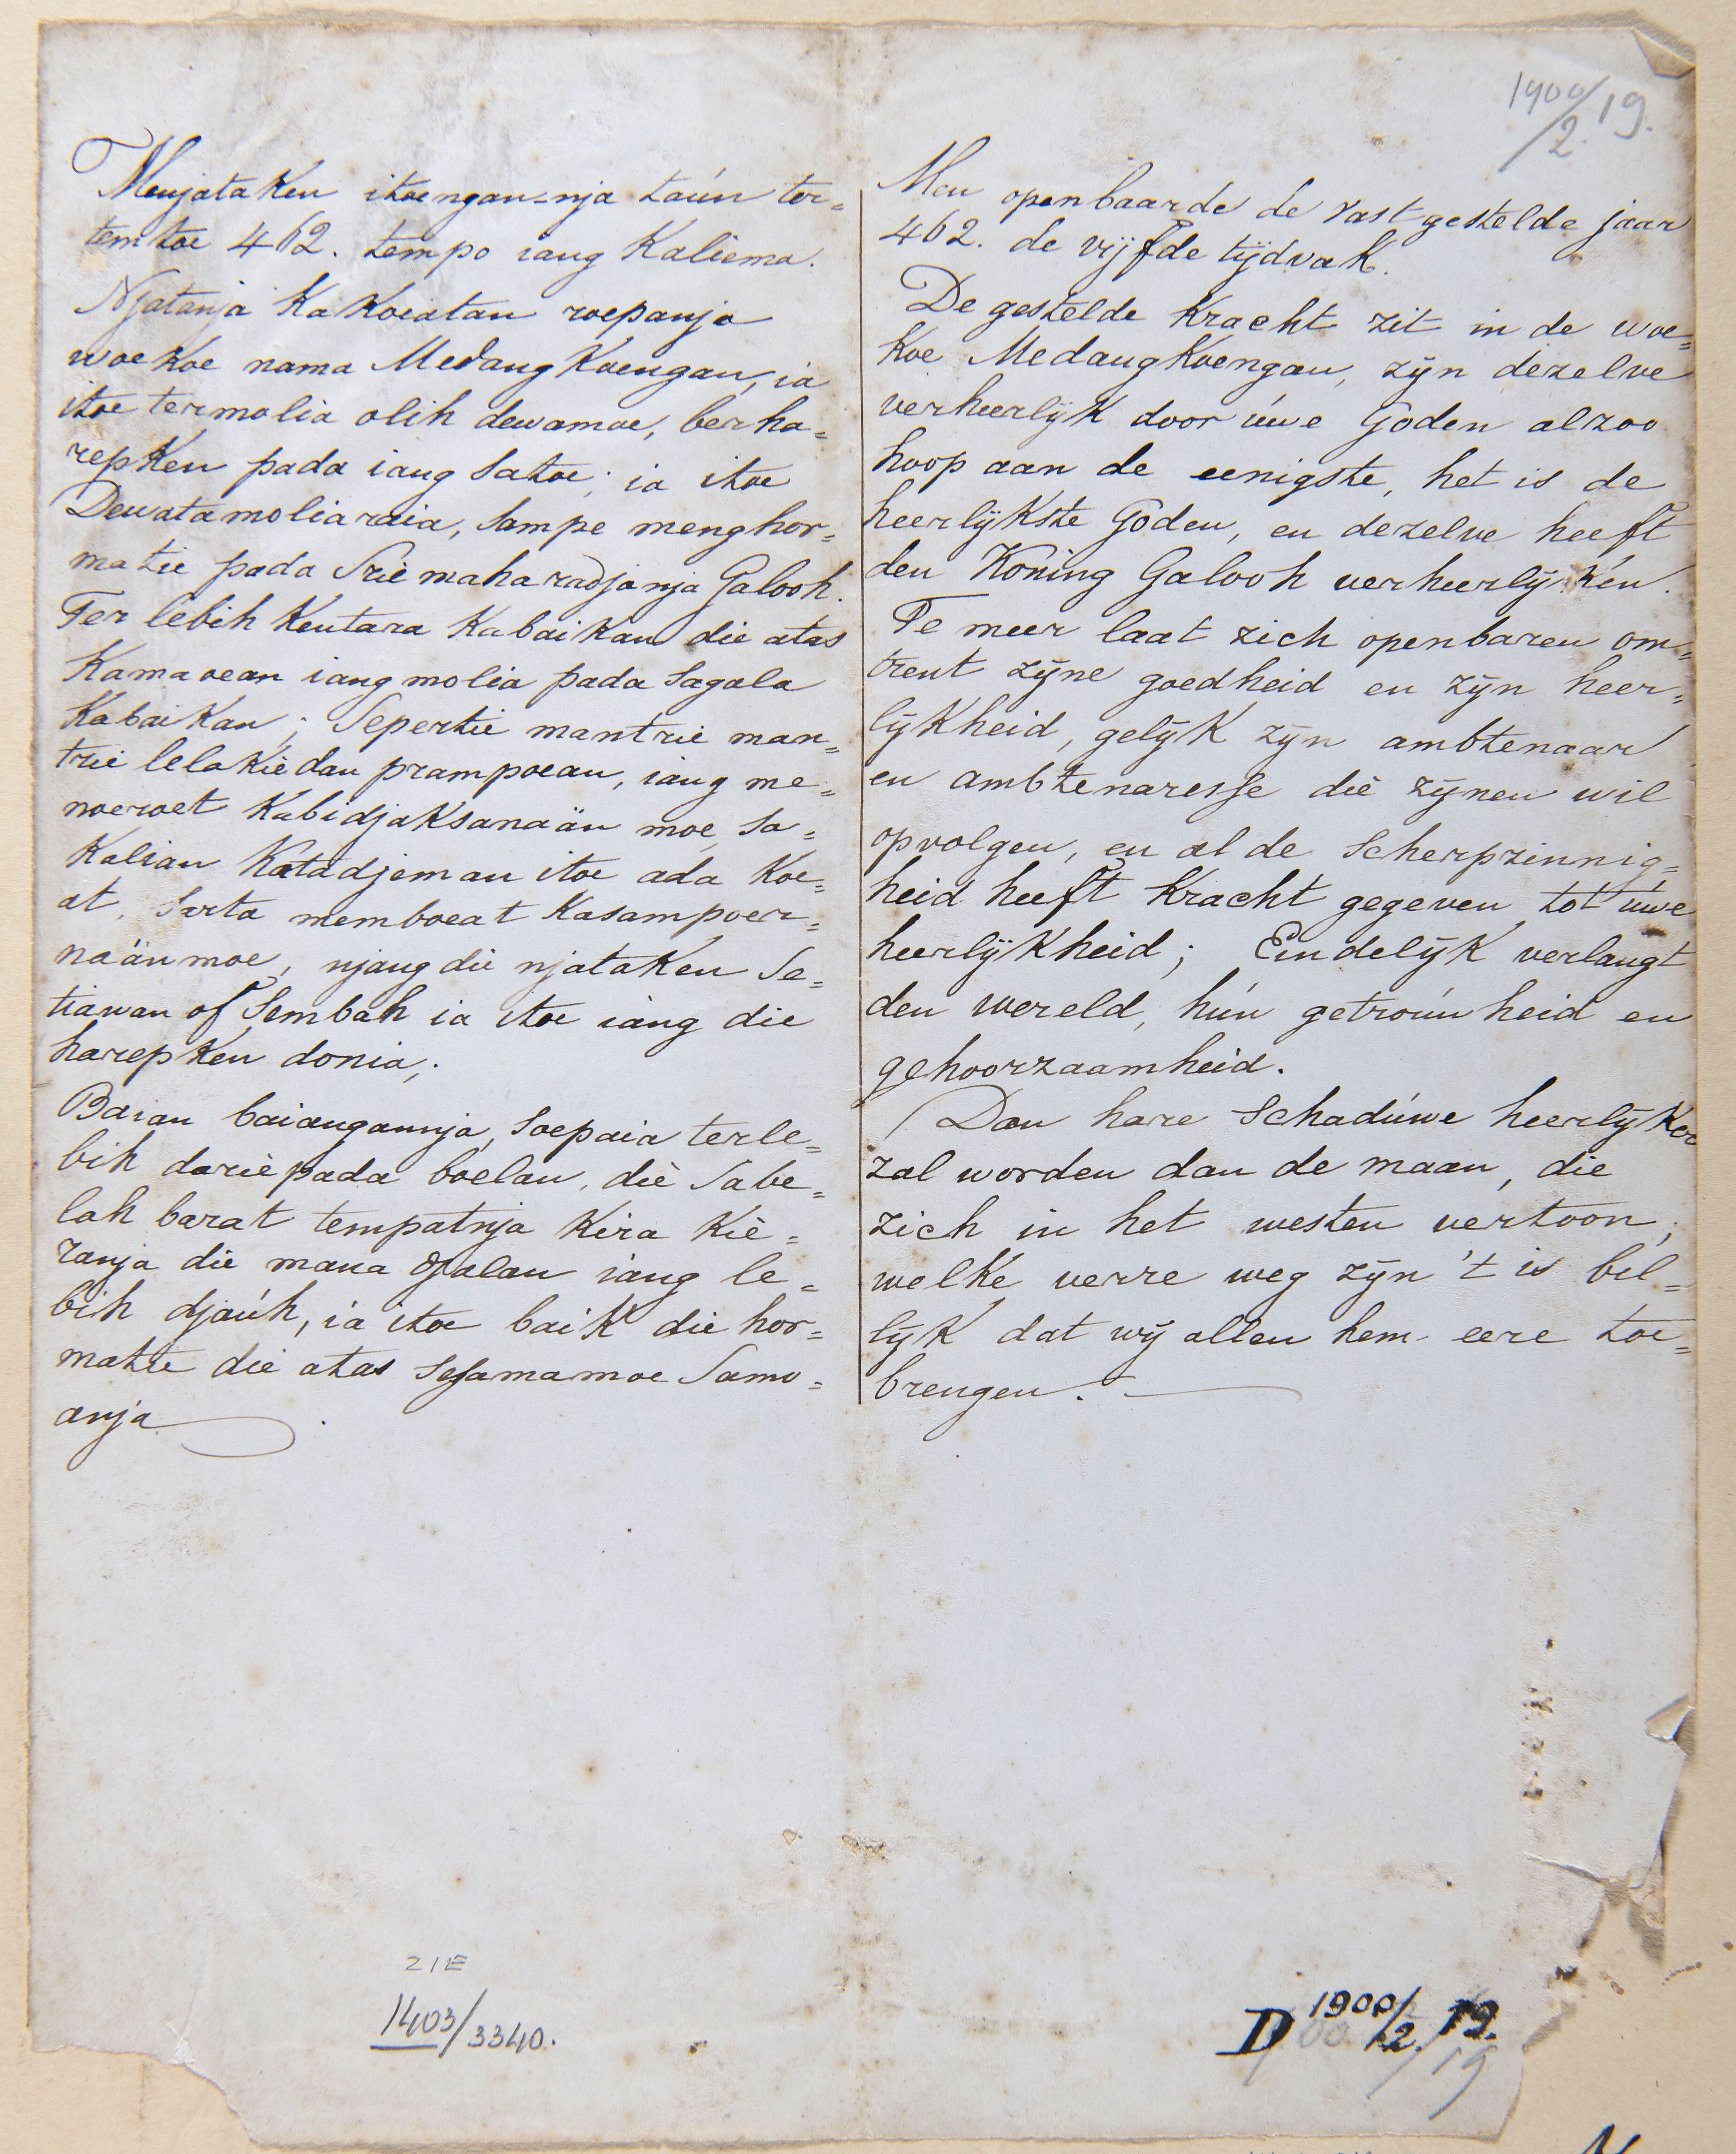 1900/2.19.
Menjataken itoengan-nja taún ter=
temtoe 462. tempo iang Kaliema.
Njatanja Kakoeatan roepanja
woekoe nama Medang Koengan, ia
itoe termolia olih dewamoe, berha=
repken pada iang satoe; ia itoe
Dewatamoliaraia, sampe menghor=
matie pada Srie maharadjanja Galooh.
Ter lebih Kentara Kabaikan die atas
Kamaoean iang molia pada sagala
Kabaikan; Sepertie mantrie man=
trie lelakie dan prampoean, iang me=
noeroet Kabidjaksanaän moe, sa=
kalian Katadjeman itoe ada Koe=
at, sarta memboeat Kasampoer=
naänmoe, njang die njataken Se=
tiawan of Sembah ia itoe iang die
harepken donia;
Baian baiangannja, soepaia terle=
bih darie pada boelan, die Sabe=
lah barat tempatnja Kira Kie=
ranja die mana djalan iang le=
bih djaúh, ia itoe baik die hor=
matie die atas sesamamoe Samo=
anja
Men openbaarde de vastgestelde jaar
462. de vijfde tijdvak.
De gestelde Kracht zit in de woe=
Koe Medangkoengan, zijn dezelve
verheerlijk door úwe Goden alzoo
hoop aan de eenigste, het is de
heerlijkste Goden, en dezelve heeft
den Koning Galooh verheerlijken.
Te meer laat zich openbaren om=
trent zijne goedheid en zijn heer=
lijkheid, gelijk zijn ambtenaar
en ambtenaresse die zijnen wil
opvolgen, en al de Scherpzinnig=
heid heeft Kracht gegeven tot úwe
heerlijkheid; Eindelijk verlangt
den wereld, hún getroúwheid en
gehoorzaamheid.
Dan hare Schadúwe heerlijker
zal worden dan de maan, die
zich in het westen vertoon,
welke verre weg zijn 't is bil=
lijk dat wij allen hem eere toe=
brengen.
ZIE
1403/3340.
D 1900/2.19.